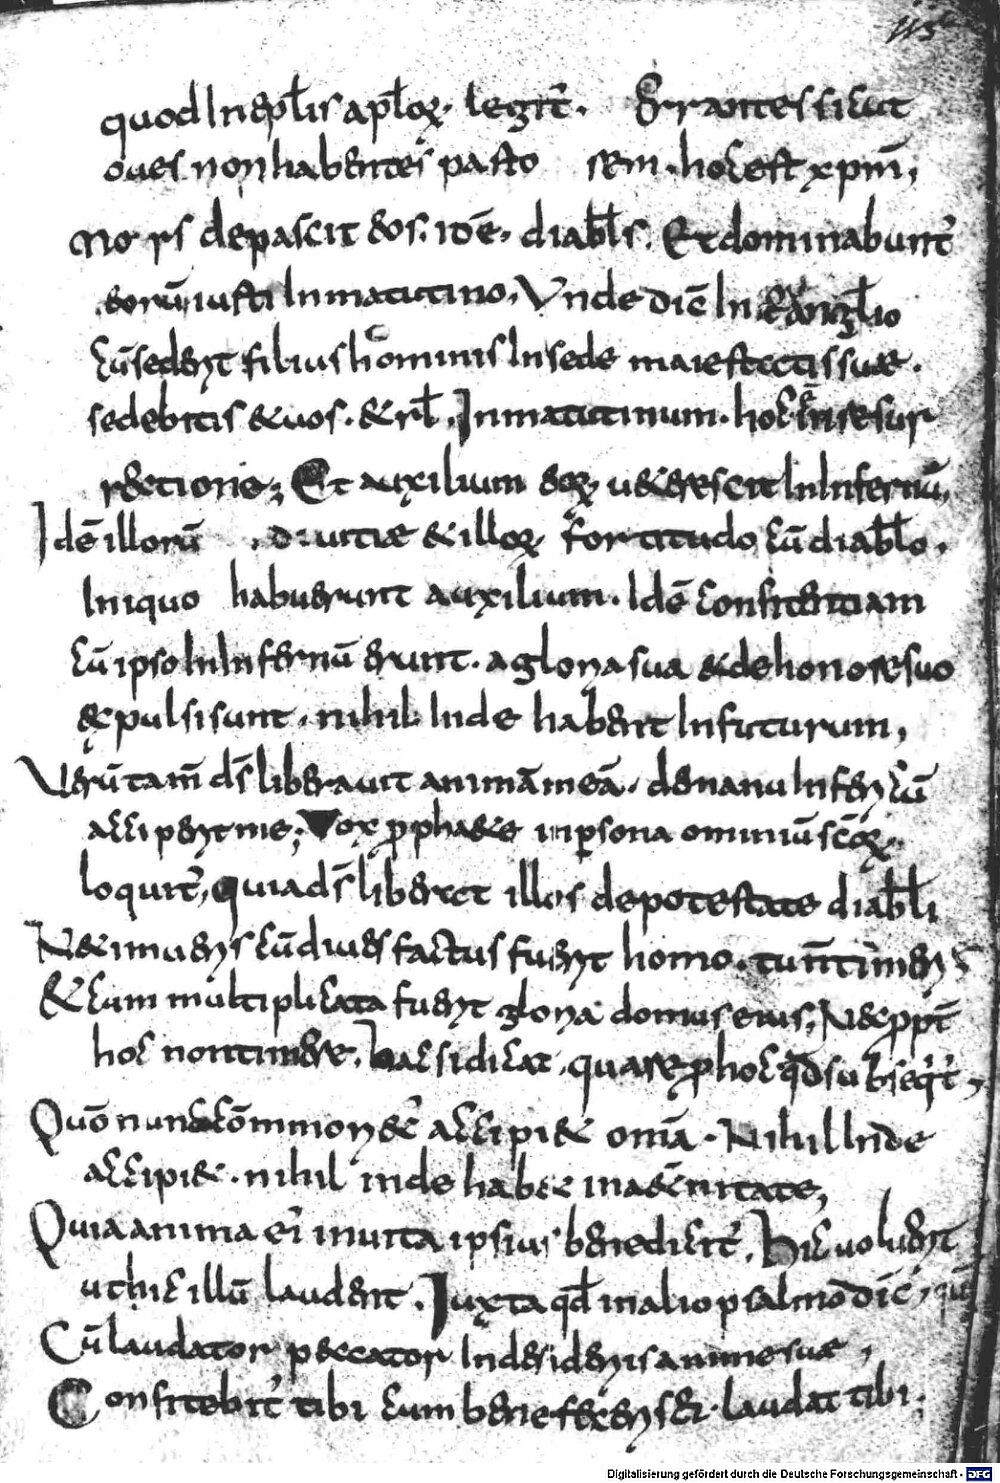 115
quod In ep̄lis ap̄loꝝ. legit̄. Errantes sicut
oues non habentes pasto rem. hoc est xp̄m;
mors depascit eos. idē. diabl̄s. Et dominabunt̄
eorū iusti In matutino. Vnde dic̄ In euangl̄io
cū sederit filius hominis In sede maiestatis suae.
sedebitis & uos. & rl̄. In matutinum. hoc ē In resur
rectione; Et auxilium eoꝝ. ueterescit In Infernū,
Idē illorū diuitiae & illoꝝ fortitudo cū diabl̄o.
Iniquo habuerunt auxilium. Idē confidentiam
cū ipso In Infernū erunt. a gloria sua & de honore suo
expulsi sunt. nihil Inde habent In futurum,
Verūtam̄ d̄s liberauit animā meā. de manu Inferi cū
acceperit me; Vox p̄ph&ae in p̄sona omniū sc̄oꝝ.
loquit̄, quia d̄s liberet illos de potestate diabl̄i
Ne timueris cū diues factus fuerit homo. tun̄ timeris
& cum multiplicata fuerit gloria domus eius. Ne ppt̄
hoc non timere. hac si dicat. quare p hoc qd̄ subseqt̄,
Quō nunc cōmmori& accipi& om̄a. Nihil Inde
accipi&. nihil inde habet in aet̄nitate,
Quia anima ei in uita ipsius benedicit̄. Hic uoluerit
ut hic illū laudent. Iuxta qd̄ in alio psalmo dic̄.
Cū laudator peccator In desideriis anime suae,
Confitebit̄ tibi cum benefeceris ei. laudat tibi;
Digitalisierung gefördert durch die Deutsche Forschungsgemeinschaft - DFG